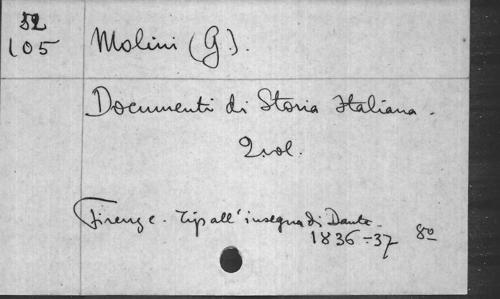 52
105
Molini (G.).
Documenti di Storia Italiana.
2 vol.
Firenze. Tip all' insegna di Dante.
1836-37 8º